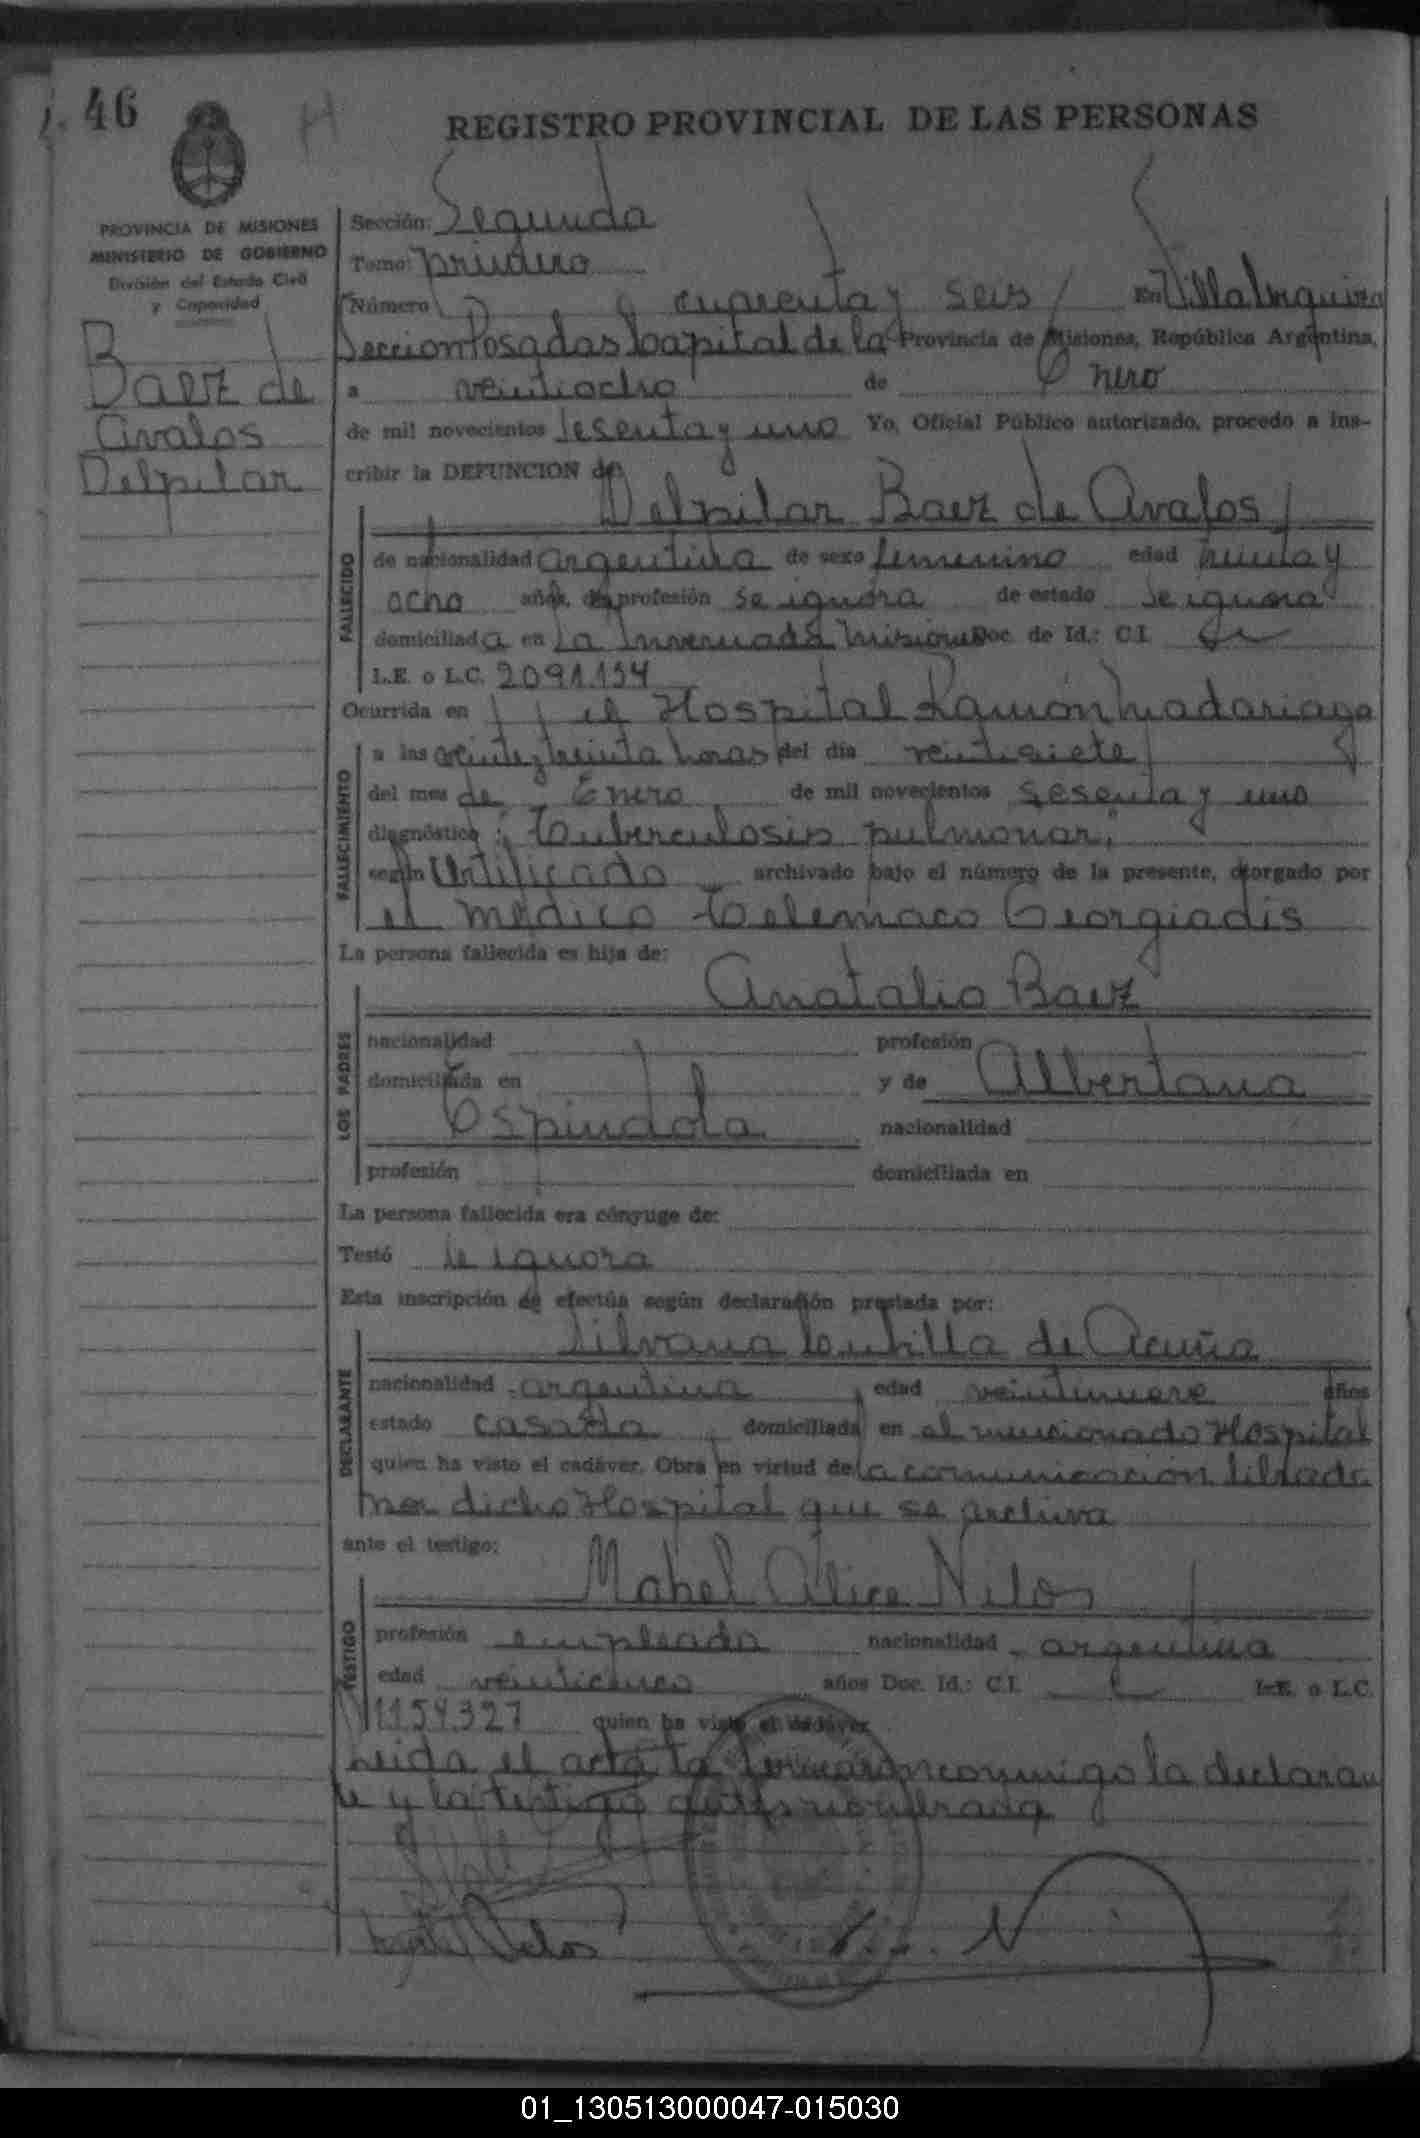 46
H
REGISTRO PROVINCIAL DE LAS PERSONAS
PROVINCIA DE MISIONES
MINISTERIO DE GOBIERNO
División del Estado Civil
y Capacidad
Baez de
Avalos
Delpilar
Sección: Segunda
Tomo: primero
Número cuarenta y seis En Villa Urquiza
Seccion Posadas Capital de la Provincia de Misiones, República Argentina,
a veintiocho de Enero
de mil novecientos sesenta y uno Yo, Oficial Público autorizado, procedo a ins-
cribir la DEFUNCION de
Delpilar Baez de Avalos
FALLECIDO
de nacionalidad argentina de sexo femenino edad treinta y
ocho años, de profesión se ignora de estado se ignora
domiciliada en La Invernada Misiones Doc. de Id.: C.I.
L.E. o L.C. 2091.154
Ocurrida en el Hospital Ramón Madariaga
FALLECIMIENTO
a las veinte y treinta horas del día veintisiete
del mes de Enero de mil novecientos sesenta y uno
diagnóstico: "Tuberculosis pulmonar",
según Certificado archivado bajo el número de la presente, otorgado por
el medico Telemaco Georgiadis
La persona fallecida es hija de:
Anatalio Baez
LOS PADRES
nacionalidad profesión
domiciliada en y de Albertana
Espindola nacionalidad
profesión domiciliada en
La persona fallecida era cónyuge de:
Testó se ignora
Esta inscripción se efectúa según declaración prestada por:
Silvana de Acuña
DECLARANTE
nacionalidad argentina edad veintinueve años
estado casada domiciliada en el mencionado Hospital
quien ha visto el cadáver. Obra en virtud de la comunicación librada
por dicho Hospital que se archiva
ante el testigo:
Mabel Alice Nilos
TESTIGO
profesión empleada nacionalidad argentina
edad veinticinco años Doc. Id.: C.I. L.E. o L.C.
1154.327 quien ha visto el cadáver
Leida el acta la firmaron conmigo la declaran
te y la testigo
01_130513000047-015030